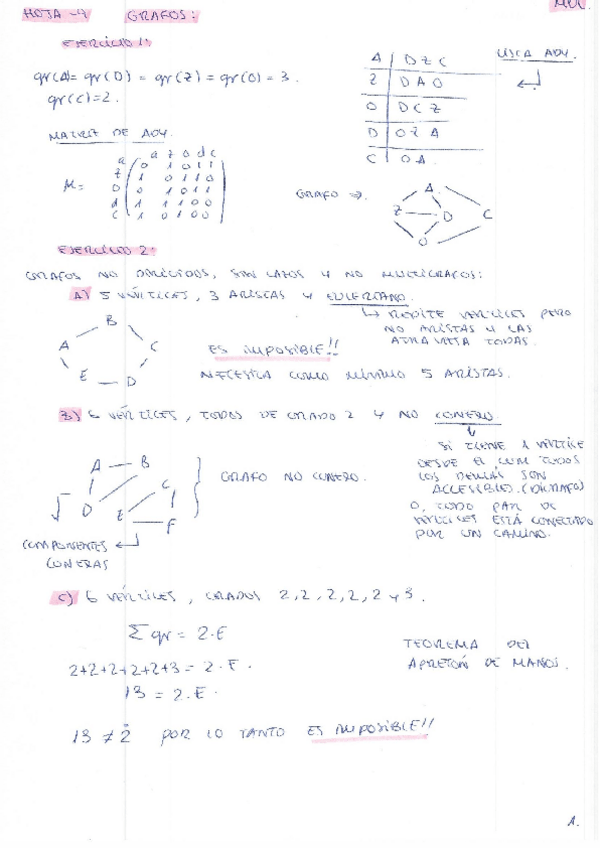 HOJA-4 GRAFOS:
EJERCICIO 1:
gr(A)= gr(D) = gr(Z) = gr(O) = 3.
gr(C)=2.
LISTA ADY.
A | D Z C
Z | D A O
O | D C Z
D | O Z A
C | O A
MATRIZ DE ADY.
a z o d c
M =
a 0 1 0 1 1
z 1 0 1 1 0
O 0 1 0 1 1
d 1 1 1 0 0
C 1 0 1 0 0
GRAFO →
A
Z D C
O
EJERCICIO 2:
GRAFOS NO DIRIGIDOS, SIN LAZOS Y NO MULTIGRAFOS:
A) 5 VÉRTICES, 3 ARISTAS Y EULERIANO.
↳ REPITE VÉRTICES PERO
NO ARISTAS Y LAS
ATRAVIESA TODAS.
B
A C
E D
ES IMPOSIBLE!!
NECESITA COMO MÍNIMO 5 ARISTAS.
B) 6 VÉRTICES, TODOS DE GRADO 2 Y NO CONEXO.
SI TIENE 1 VÉRTICE
DESDE EL CUAL TODOS
LOS DEMÁS SON
ACCESIBLES. (DIGRAFO)
O, TODO PAR DE
VÉRTICES ESTÁ CONECTADO
POR UN CAMINO.
A B
C
D E F
GRAFO NO CONEXO.
COMPONENTES
CONEXAS
C) 6 VÉRTICES, GRADOS 2,2,2,2,2 y 3.
Σ gr = 2·E
2+2+2+2+2+3 = 2·E.
13 = 2·E.
TEOREMA DEL
APRETÓN DE MANOS.
13 ≠ 2̇ POR LO TANTO ES IMPOSIBLE!!
1.